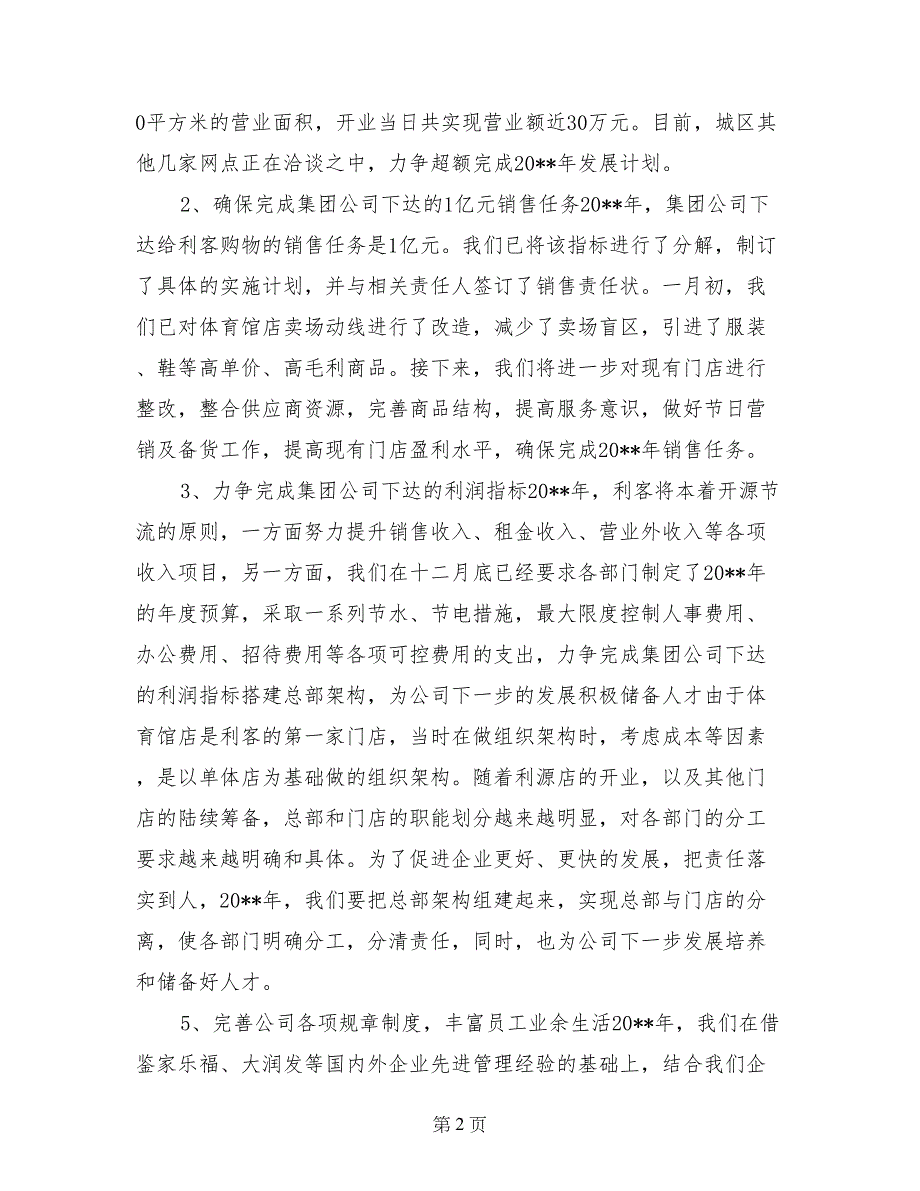 0平方米的营业面积，开业当日共实现营业额近30万元。目前，城区其
他几家网点正在洽谈之中，力争超额完成20**年发展计划。
2、确保完成集团公司下达的1亿元销售任务20**年，集团公司下
达给利客购物的销售任务是1亿元。我们已将该指标进行了分解，制订
了具体的实施计划，并与相关责任人签订了销售责任状。一月初，我
们已对体育馆店卖场动线进行了改造，减少了卖场盲区，引进了服装
、鞋等高单价、高毛利商品。接下来，我们将进一步对现有门店进行
整改，整合供应商资源，完善商品结构，提高服务意识，做好节日营
销及备货工作，提高现有门店盈利水平，确保完成20**年销售任务。
3、力争完成集团公司下达的利润指标20**年，利客将本着开源节
流的原则，一方面努力提升销售收入、租金收入、营业外收入等各项
收入项目，另一方面，我们在十二月底已经要求各部门制定了20**年
的年度预算，采取一系列节水、节电措施，最大限度控制人事费用、
办公费用、招待费用等各项可控费用的支出，力争完成集团公司下达
的利润指标搭建总部架构，为公司下一步的发展积极储备人才由于体
育馆店是利客的第一家门店，当时在做组织架构时，考虑成本等因素
，是以单体店为基础做的组织架构。随着利源店的开业，以及其他门
店的陆续筹备，总部和门店的职能划分越来越明显，对各部门的分工
要求越来越明确和具体。为了促进企业更好、更快的发展，把责任落
实到人，20**年，我们要把总部架构组建起来，实现总部与门店的分
离，使各部门明确分工，分清责任，同时，也为公司下一步发展培养
和储备好人才。
5、完善公司各项规章制度，丰富员工业余生活20**年，我们在借
鉴家乐福、大润发等国内外企业先进管理经验的基础上，结合我们企
第 2 页